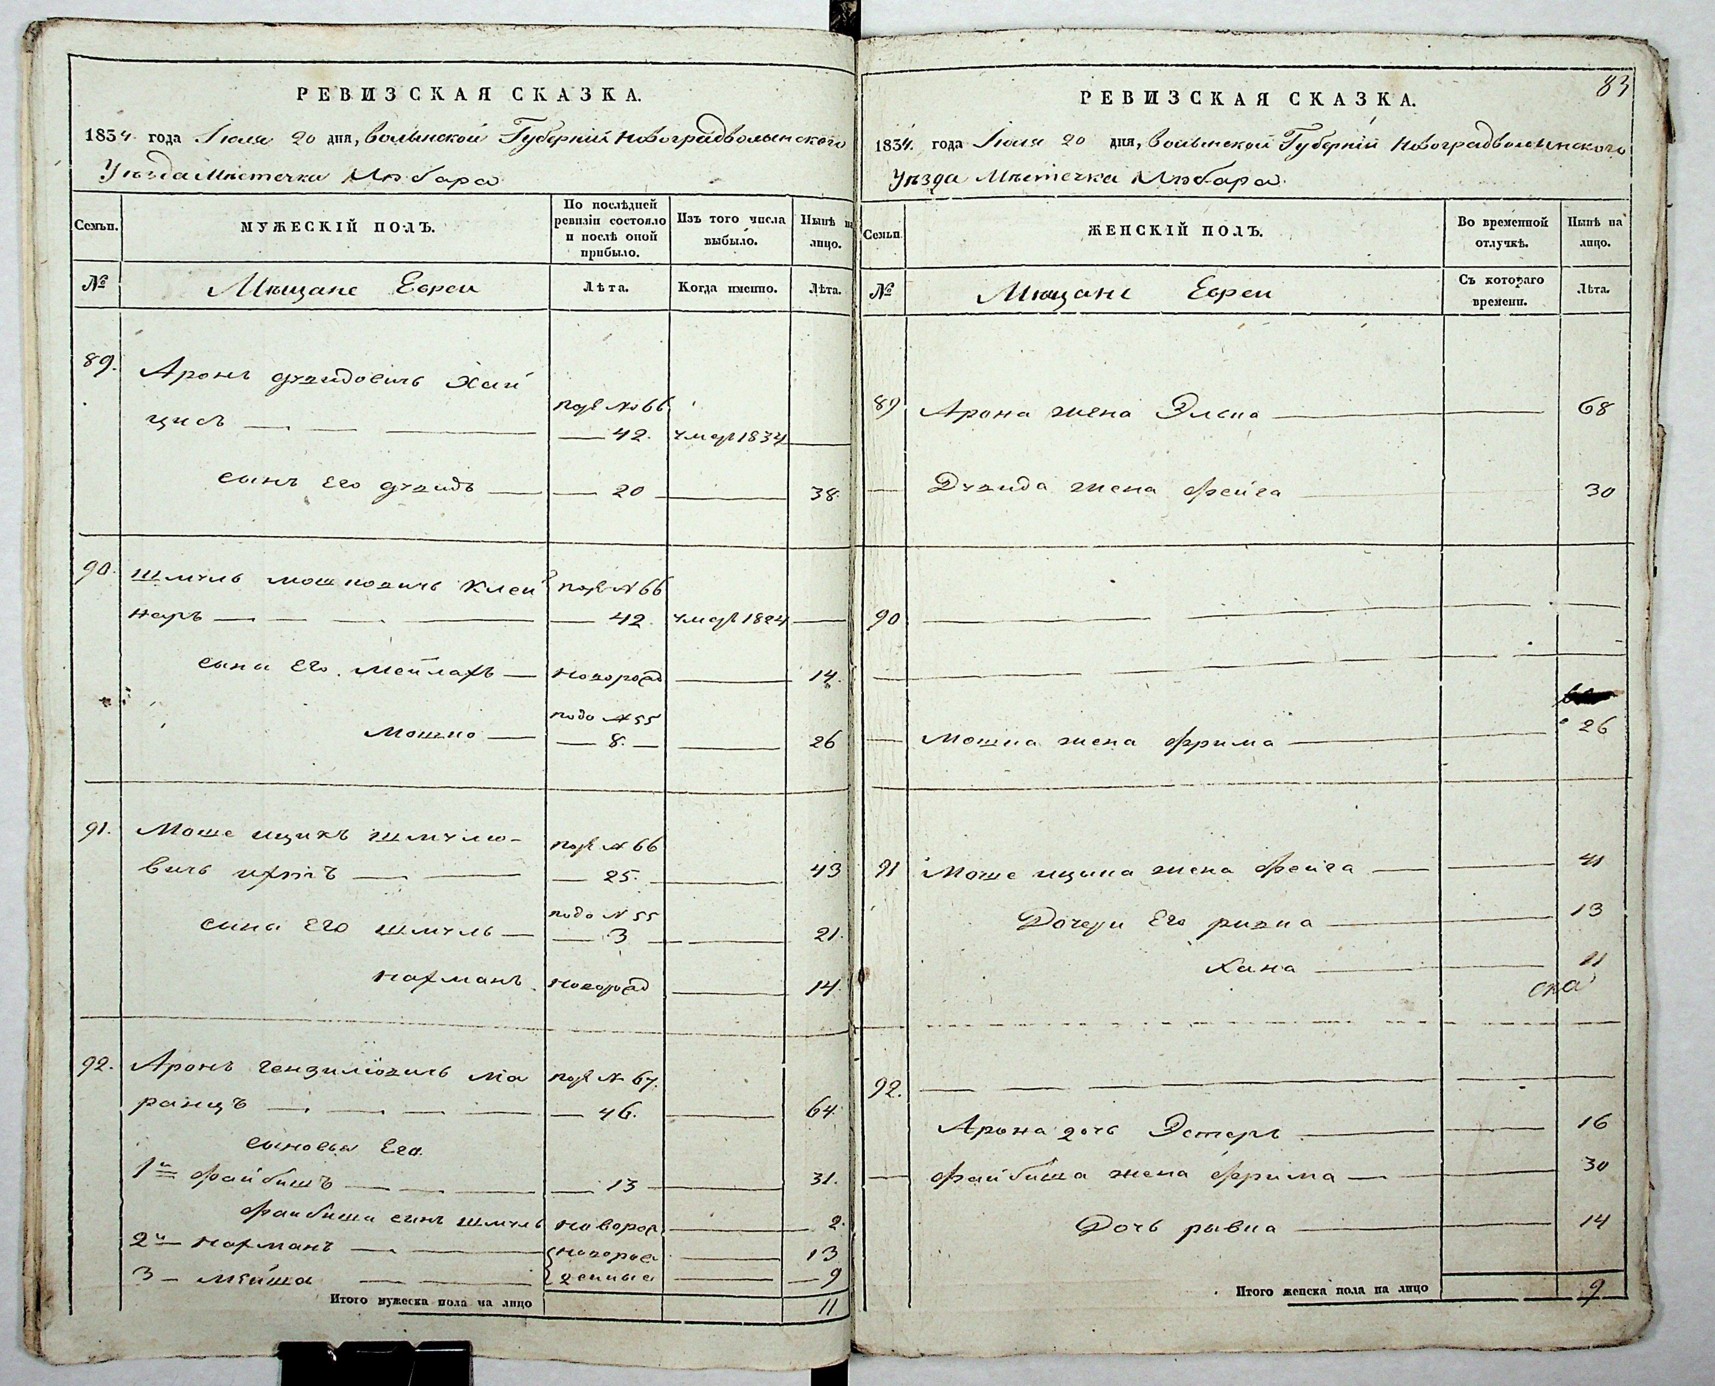 РЕВИЗСКАЯ СКАЗКА.
1834 года Июля 20 дня, Волынской Губерніи Новоградволынского
Уѣзда Мѣстечка Любара
Семьи.
МУЖЕСКІЙ ПОЛЪ.
По послѣдней ревизіи состояло и послѣ оной прибыло.
Изъ того числа выбыло.
Нынѣ на лицо.
№
Мѣщане Евреи
Лѣта.
Когда именно.
Лѣта.
89. Аронъ Дувидовичъ Хай
цисъ под № 66
42. умер 1834
сынъ Его Дувидъ 20 38
90. Шмуль Мошковичъ Клей под № 66
неръ 42. умер 1824
сыны Его Мейлахъ новорожд 14.
подъ № 55
Мошко 8. 26
91. Моше Ицикъ Шмулю-
под № 66
вичъ 25. 43
подъ № 55
сыны Его Шмуль 3 21.
Нахманъ новорожд 14.
92. Аронъ Гензилювичъ Ма под № 67.
ранцъ 46. 64
сыновья Его
1й Файбишъ 13 31.
Файбиша сынъ Шмуль новорож 2.
2й Нахманъ новорож 13
3 – Мейша денные 9
Итого мужеска пола на лицо 11
83
РЕВИЗСКАЯ СКАЗКА.
1834. года Июля 20 дня, Волынской Губерніи Новоградволынского
Уѣзда Мѣстечка Любара
Семьи.
ЖЕНСКІЙ ПОЛЪ.
Во временной отлучкѣ.
Нынѣ на лицо.
№
Мѣщане Евреи
Съ котораго времени.
Лѣта.
89 Арона жена Элька 68
Дувида жена Фейга 30
90
Мошка жена Фрима 26
91 Моше Ицыка жена Фейга 41
Дочери Его Ривка 13
Хана 11
92.
Арона дочь Эстеръ 16
Файбиша жена Фрима 30
Дочь Ривка 14
Итого женска пола на лицо 9